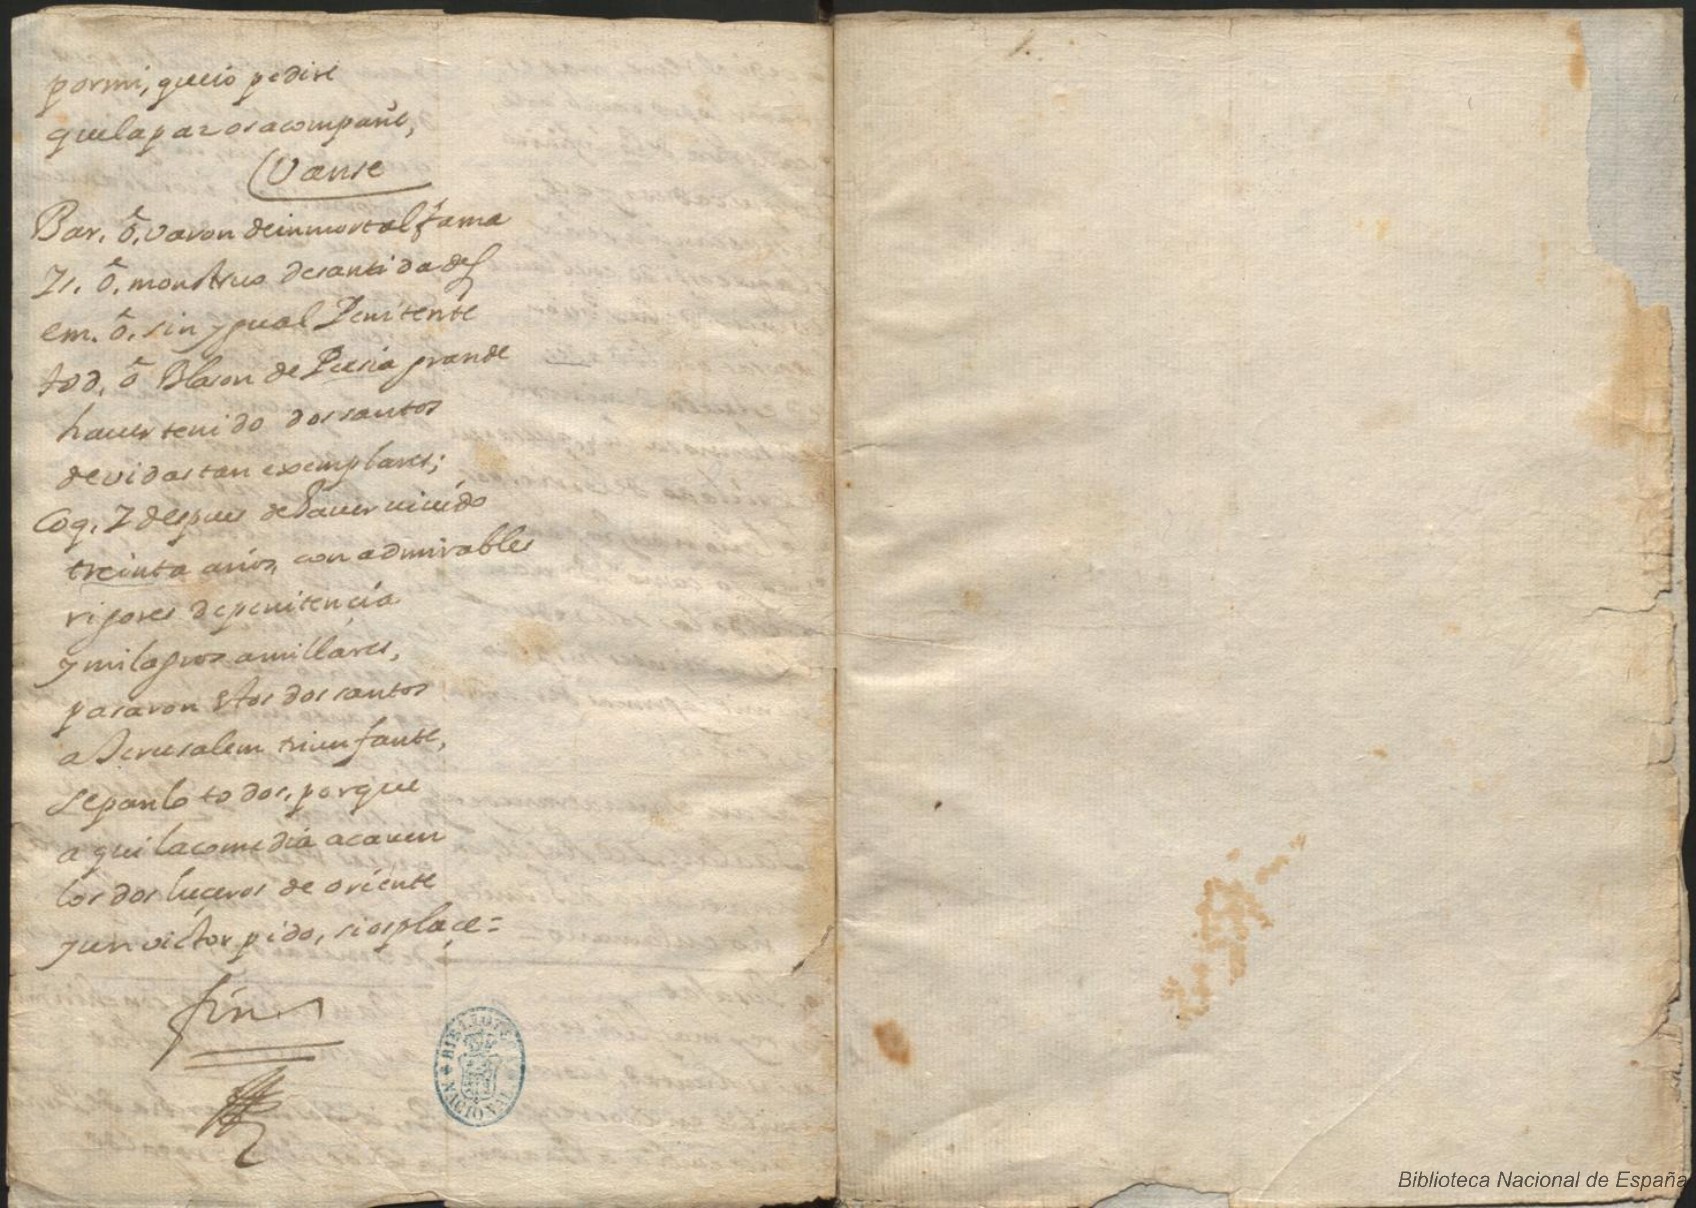 por mi, que io pedire
que la paz os acompañe,
Vanse
Bar. ô, varon de inmortal fama
Is. ô, monstruo de santidades
em. ô, sin ygual Penitente
tod. ô Blason de Persia grande
hauer tenido dos santos
de vidas tan exemplares;
Coq. I despues de hauer uiuido
treinta anios, con admirables
rigores de penitençia
y milagros a millares,
pasaron estos dos santos
a Jerusalem triunfante,
sepanlo todos, porque
aqui la comedia acauen
los dos luçeros de oriente
y un victor pido, si os plaçe=
fin
BIBLIOTECA NACIONAL
Biblioteca Nacional de España